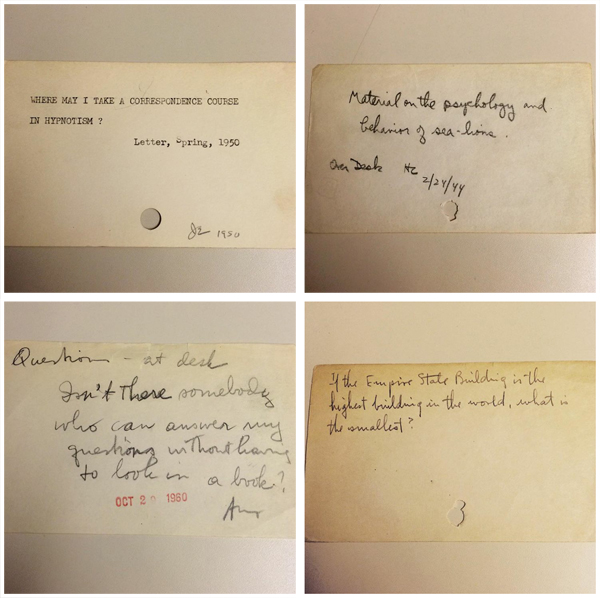 WHERE MAY I TAKE A CORRESPONDENCE COURSE
IN HYPNOTISM ?
Letter, Spring, 1950
1950
Material on the psychology and
behavior of sea-lions.
Over Desk
2/24/44
Question - at desk
Isn't there somebody
who can answer my
questions without having
to look in a book?
OCT 2 1960
If the Empire State Building is the
highest building in the world, what is
the smallest?